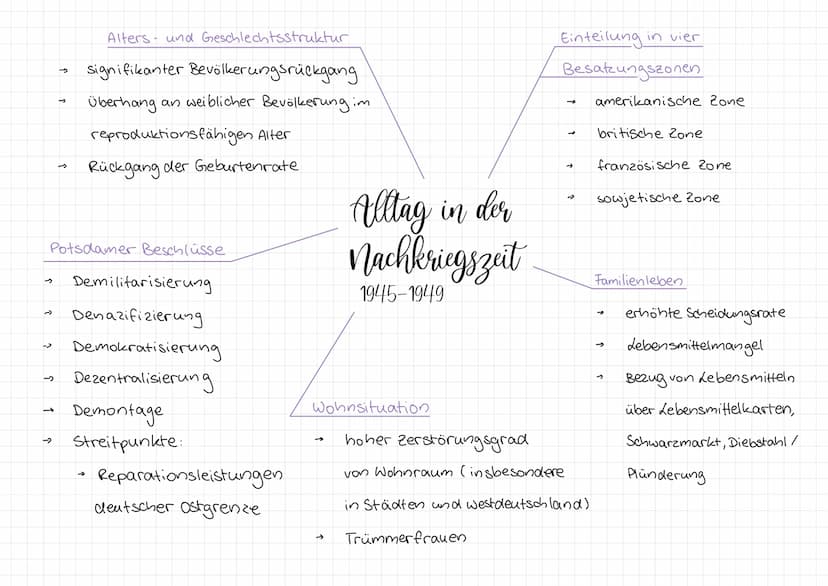 Alters- und Geschlechtsstruktur
→ signifikanter Bevölkerungsrückgang
→ Überhang an weiblicher Bevölkerung im
reproduktionsfähigen Alter
→ Rückgang der Geburtenrate
Einteilung in vier
Besatzungszonen
→ amerikanische Zone
→ britische Zone
→ französische Zone
→ sowjetische Zone
Alltag in der
Nachkriegszeit
1945-1949
Potsdamer Beschlüsse
→ Demilitarisierung
→ Denazifizierung
→ Demokratisierung
→ Dezentralisierung
→ Demontage
→ Streitpunkte:
→ Reparationsleistungen
deutscher Ostgrenze
Wohnsituation
→ hoher Zerstörungsgrad
von Wohnraum (insbesondere
in Städten und Westdeutschland)
→ Trümmerfrauen
Familienleben
→ erhöhte Scheidungsrate
→ Lebensmittelmangel
→ Bezug von Lebensmitteln
über Lebensmittelkarten,
Schwarzmarkt, Diebstahl /
Plünderung